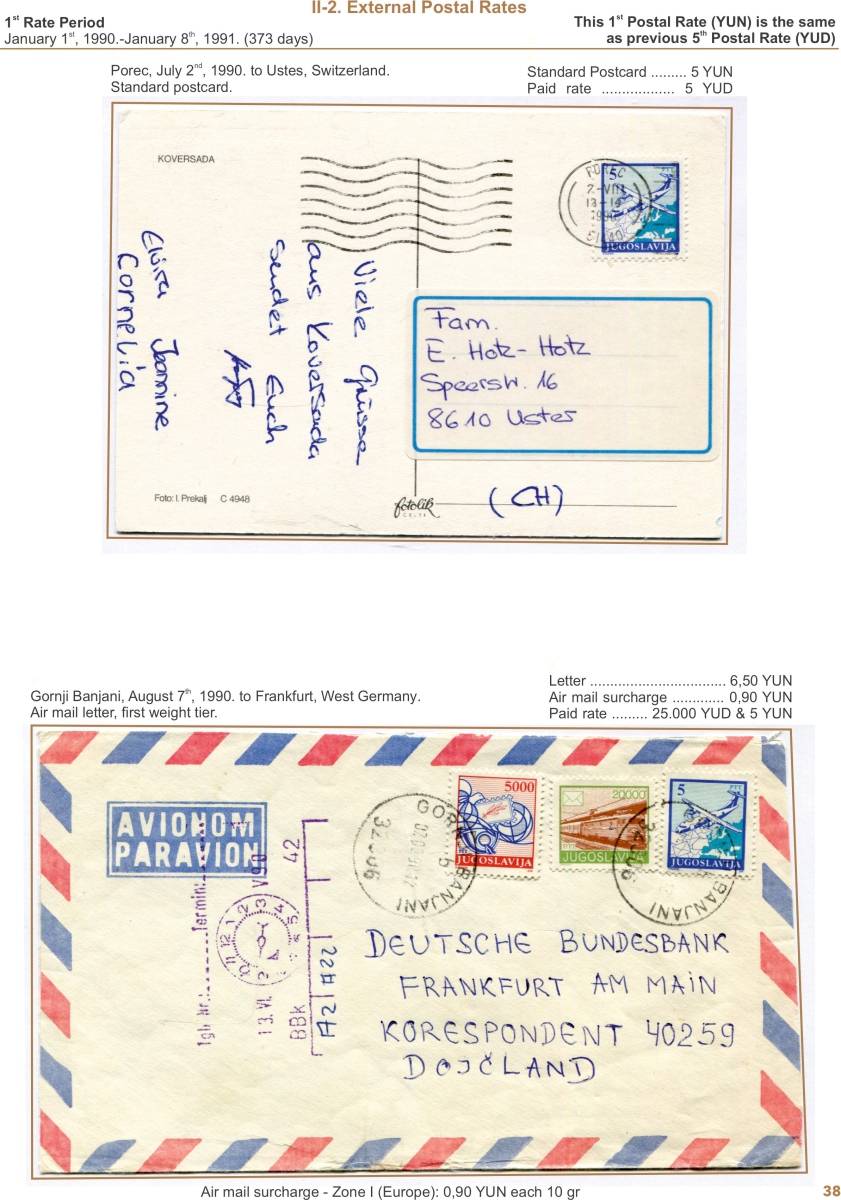 II-2. External Postal Rates
1st Rate Period
January 1st, 1990.-January 8th, 1991. (373 days)
This 1st Postal Rate (YUN) is the same
as previous 5th Postal Rate (YUD)
Porec, July 2nd, 1990. to Ustes, Switzerland.
Standard postcard.
Standard Postcard ......... 5 YUN
Paid rate .................. 5 YUD
KOVERSADA
POREC
13-19
1990
5
JUGOSLAVIJA
Viele Grüsse
aus Koversada
sendet Euch
Elvira Jeannine
Cornelia
Fam.
E. Hotz-Hotz
Speerstr. 16
8610 Uster
(CH)
Foto: I. Prekalj C 4948
fotolik
CELJE
Letter ................................. 6,50 YUN
Gornji Banjani, August 7th, 1990. to Frankfurt, West Germany.
Air mail surcharge ............. 0,90 YUN
Air mail letter, first weight tier.
Paid rate ......... 25.000 YUD & 5 YUN
AVIONOM
PARAVION
5000
JUGOSLAVIJA
20000
PTT
JUGOSLAVIJA
5
PTT
JUGOSLAVIJA
32306
BANJANI
BANJANI
Tgb Nr.: Termin:
BBk
42
DEUTSCHE BUNDESBANK
FRANKFURT AM MAIN
KORESPONDENT 40259
DOJČLAND
Air mail surcharge - Zone I (Europe): 0,90 YUN each 10 gr
38